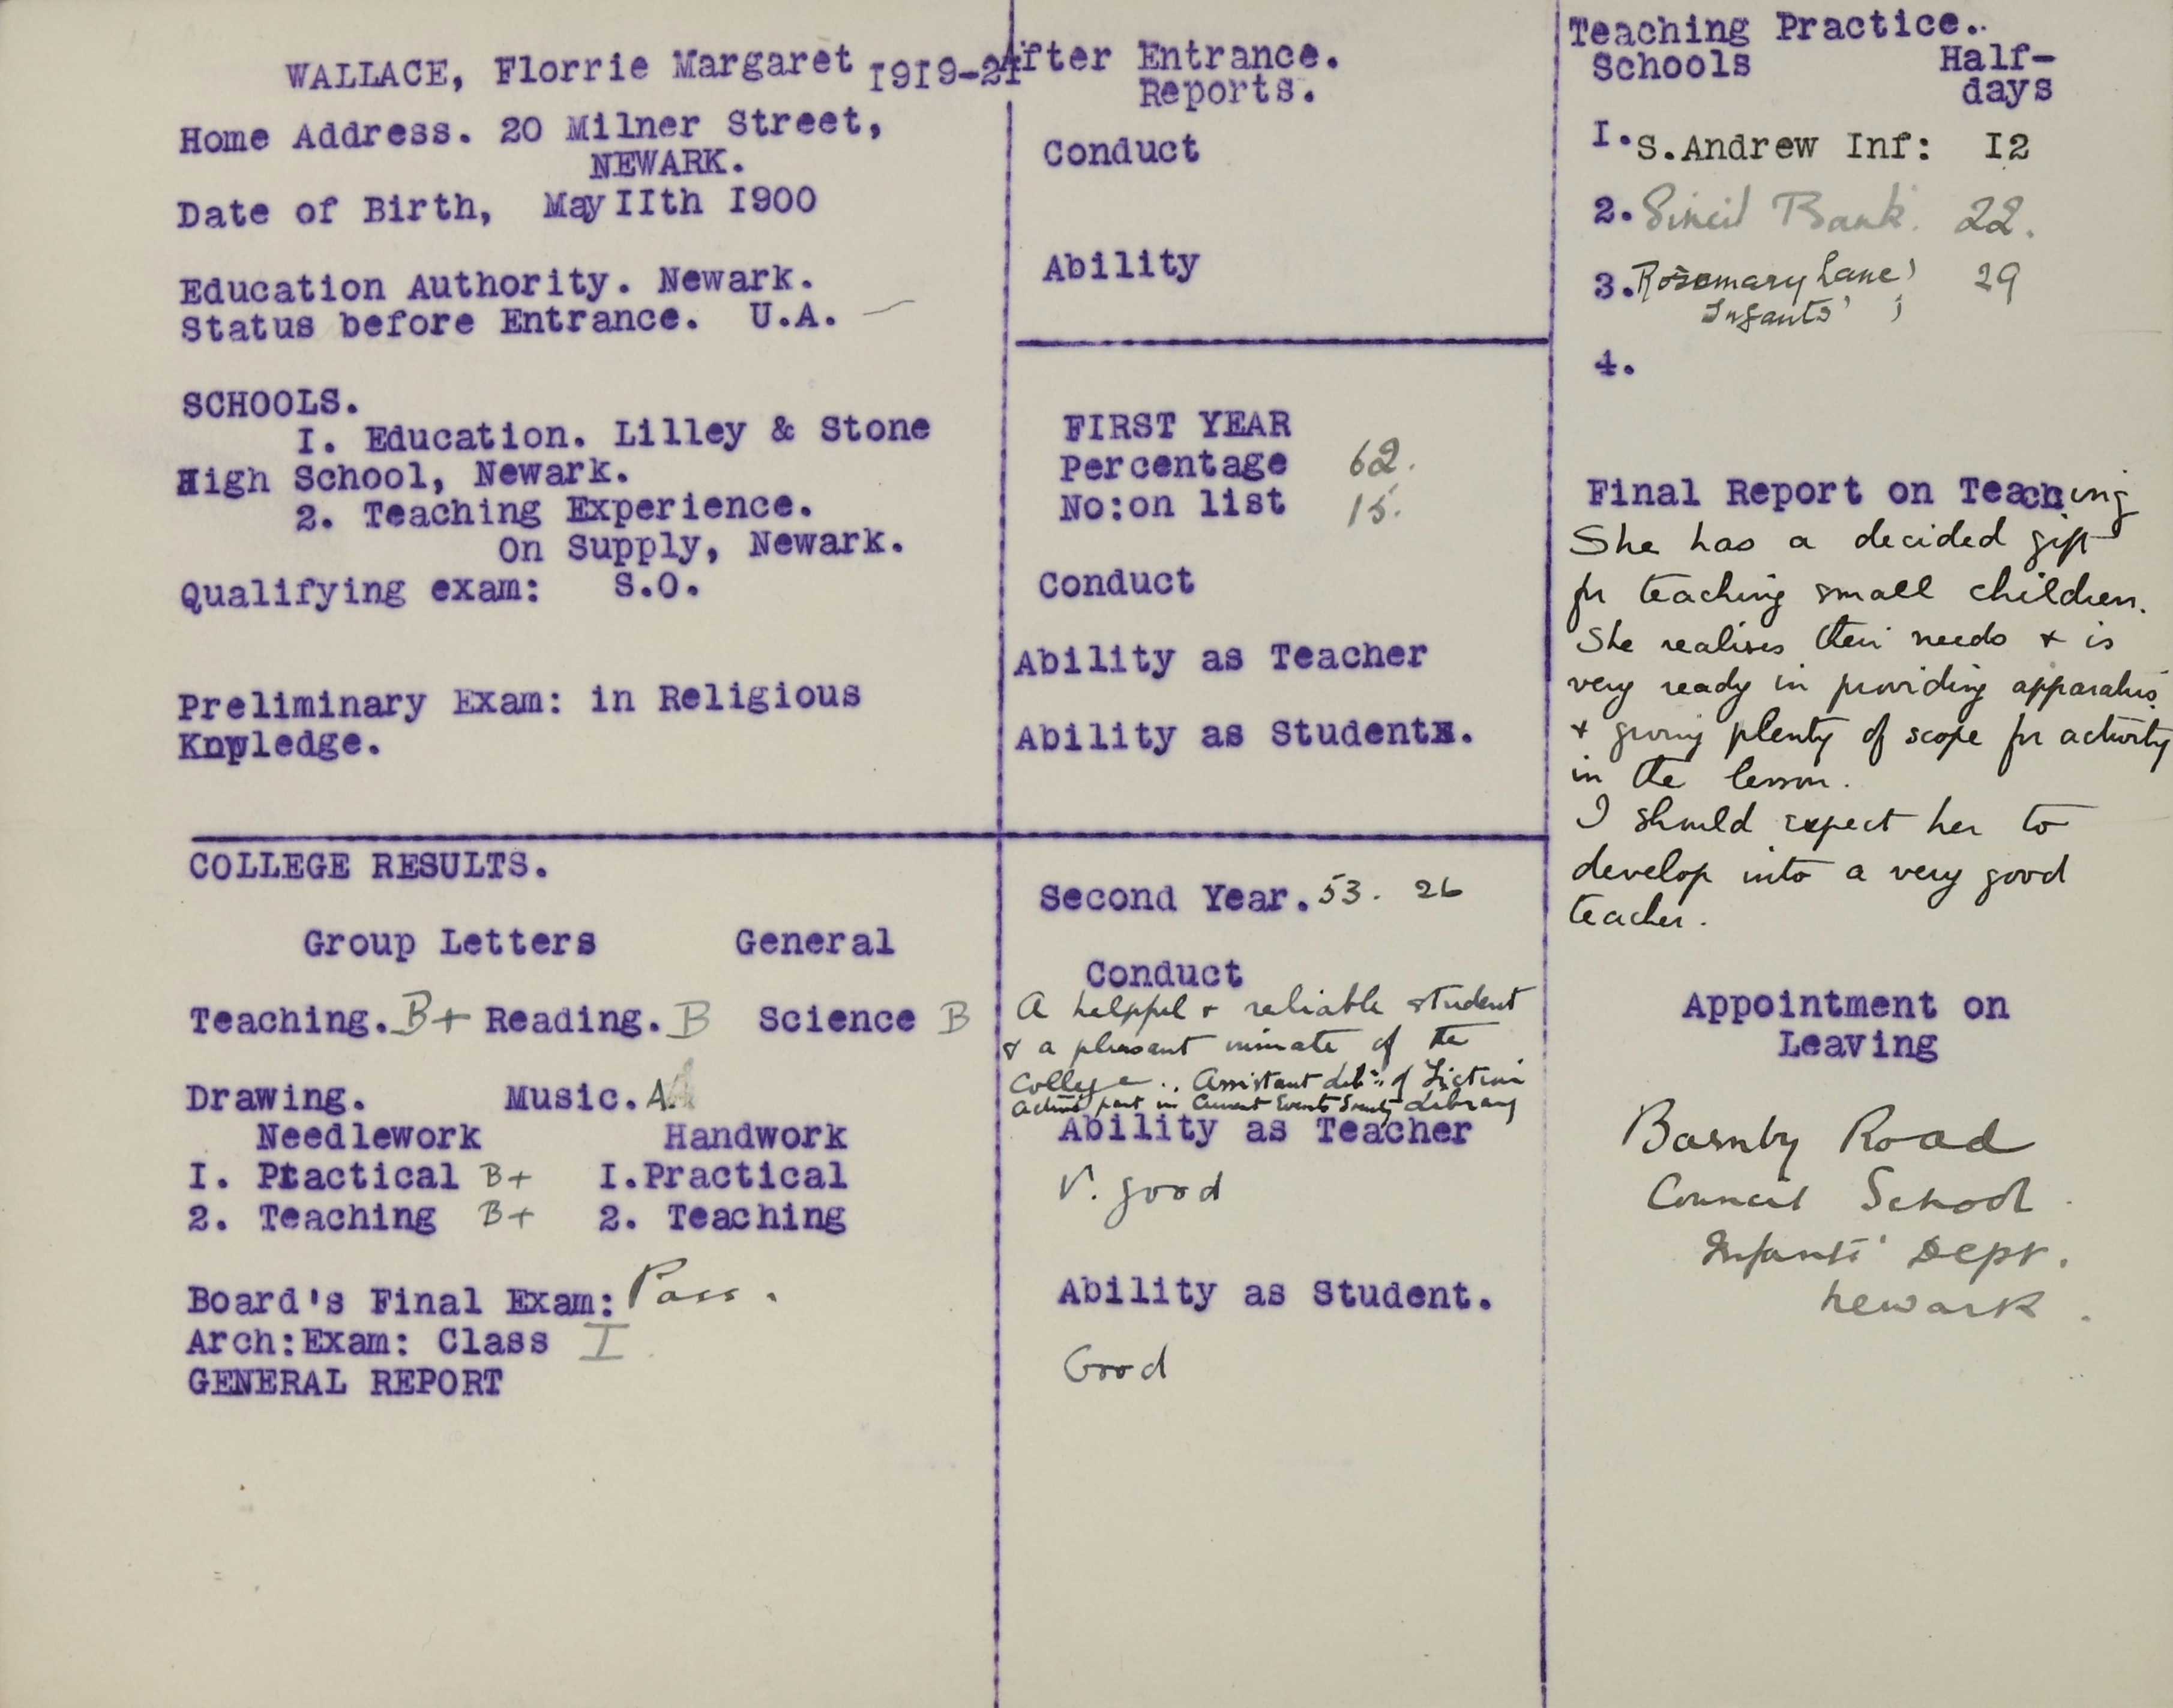 WALLACE, Florrie Margaret I9I9-21
Home Address. 20 Milner Street,
NEWARK.
Date of Birth, May IIth I900
Education Authority. Newark.
Status before Entrance. U.A. —
SCHOOLS.
I. Education. Lilley & Stone
High School, Newark.
2. Teaching Experience.
On Supply, Newark.
Qualifying exam: S.O.
Preliminary Exam: in Religious
Knowledge.
COLLEGE RESULTS.
Group Letters General
Teaching. B+ Reading. B Science B
Drawing. Music. A
Needlework Handwork
I. Practical B+ I.Practical
2. Teaching B+ 2. Teaching
Board's Final Exam: Pass.
Arch:Exam: Class I
GENERAL REPORT
After Entrance.
Reports.
Conduct
Ability
FIRST YEAR
Percentage 62.
No:on list 15.
Conduct
Ability as Teacher
Ability as Students.
Second Year. 53. 26
Conduct
A helpful & reliable student
& a pleasant inmate of the
College. Assistant Libn. of Fiction
active part in Current Events Society Library
Ability as Teacher
V. good
Ability as Student.
Good
Teaching Practice.
Schools Half-
days
I. S.Andrew Inf: I2
2. Sincil Bank. 22.
3. Rosemary Lane) 29
Infants' )
4.
Final Report on Teaching
She has a decided gift
for teaching small children.
She realises their needs & is
very ready in providing apparatus
& giving plenty of scope for activity
in the lesson.
I should expect her to
develop into a very good
teacher.
Appointment on
Leaving
Barnby Road
Council School.
Infants' Dept.
Newark.